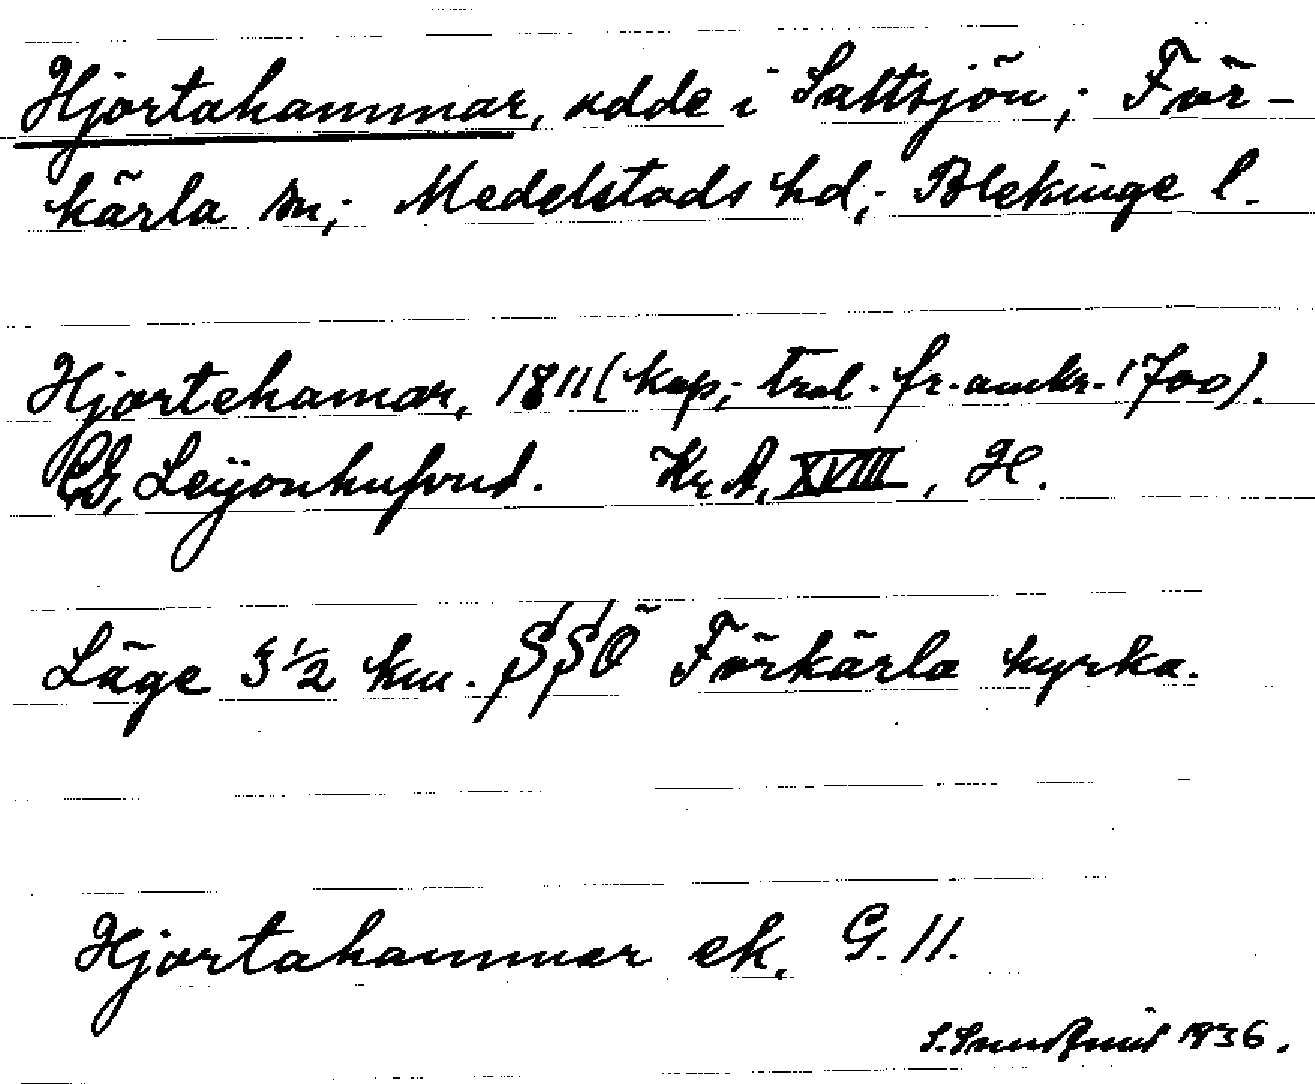 Hjortahammar, udde i Saltsjön; För-
kärla sn; Medelstads hd; Blekinge l.
Hjortehamar, 1811 (kop; trol. fr. omkr. 1700).
CG, Leijonhufvud. Kr A, XVIII, H.
Läge 3 1/2 km. SSÖ Förkärla kyrka.
Hjortahammar ek. G. 11.
1936.